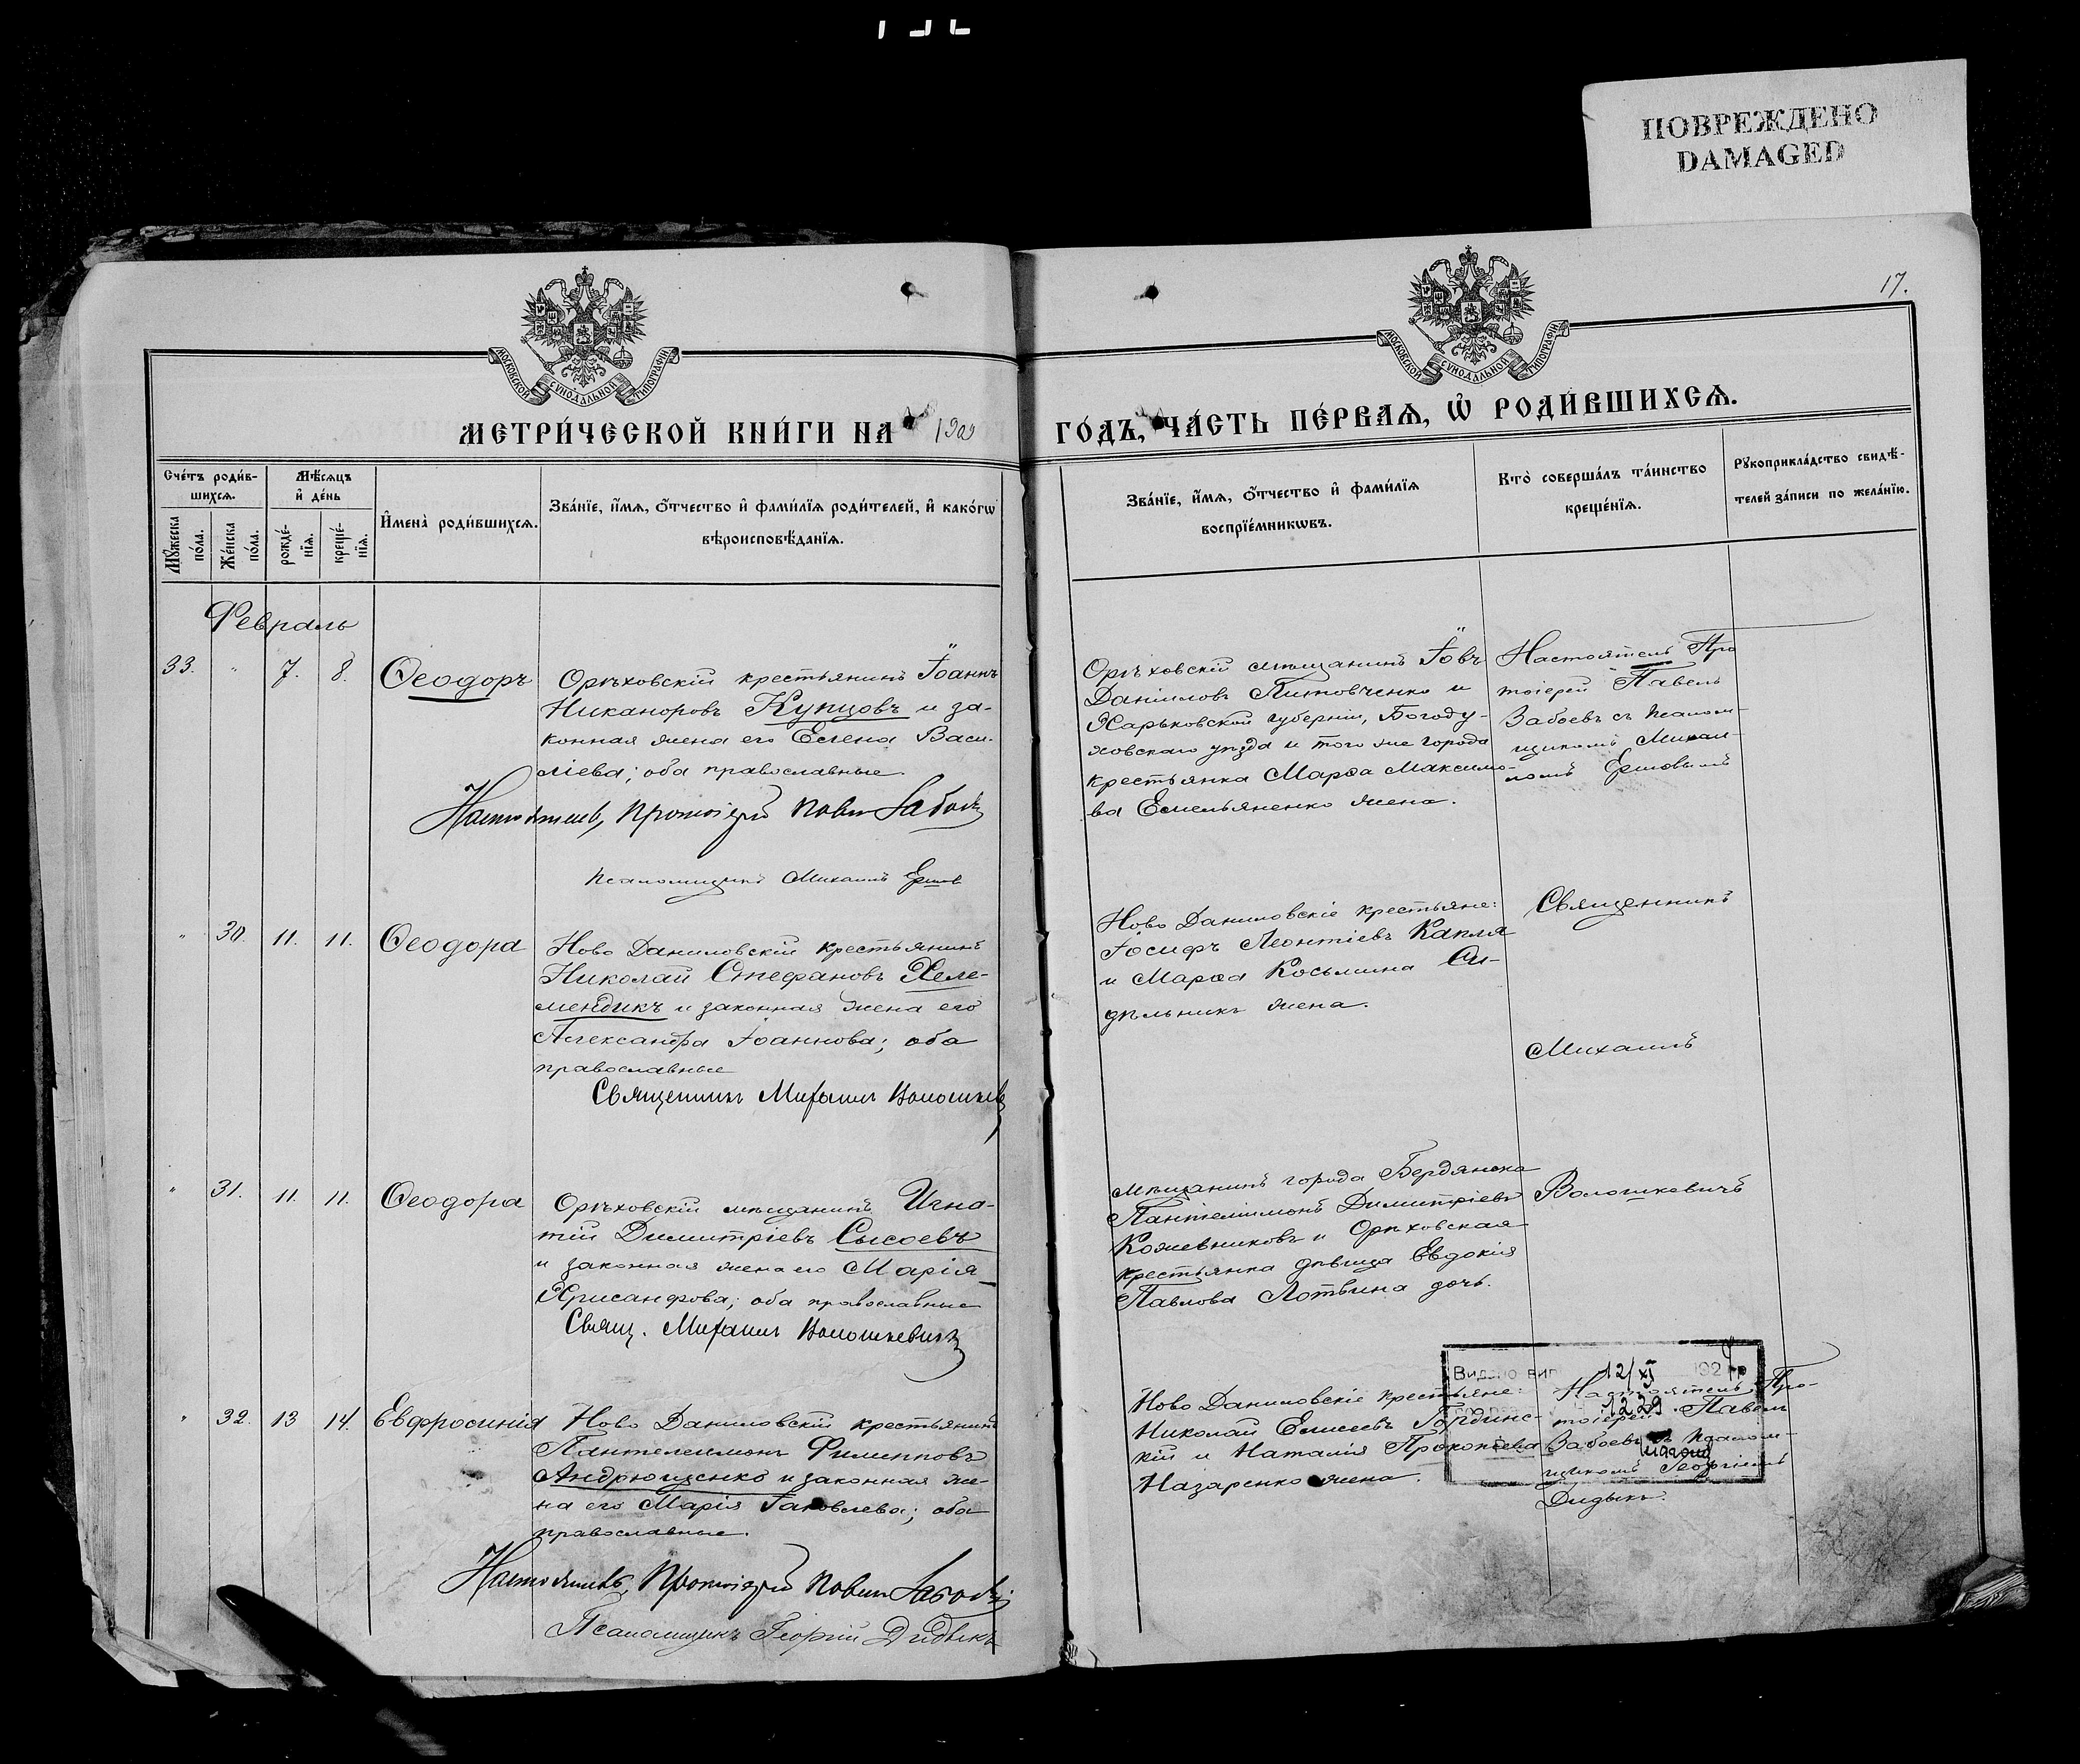 ПОВРЕЖДЕНО
DAMAGED
17.
МОСКОВСКОЙ СѴНОДАЛЬНОЙ ТИПОГРАФІИ
МОСКОВСКОЙ СѴНОДАЛЬНОЙ ТИПОГРАФІИ
МЕТРИ́ЧЕСКОЙ КНИ́ГИ НА 1909
ГО́ДЪ, ЧА́СТЬ ПЕ́РВАѦ, Ѡ҆ РОДИ́ВШИХСѦ.
Сче́тъ роди́в-
шихсѧ.
Мꙋ́жеска
по́ла.
Же́нска
по́ла.
Мѣ́сѧцъ
и҆ де́нь
рожде́-
нїѧ.
креще́-
нїѧ.
И҆мена̀ роди́вшихсѧ.
Зва́нїе, и҆́мѧ, ѻ҆́тчество и҆ фами́лїѧ роди́телей, и҆ како́гѡ
вѣроисповѣ́данїѧ.
Зва́нїе, и҆́мѧ, ѻ҆́тчество и҆ фами́лїѧ
воспрїе́мникѡвъ.
Кто̀ соверша́лъ та́инство
креще́нїѧ.
Рꙋкоприкла́дство свидѣ́-
телей за́писи по жела́нїю.
Февраль
33. " 7. 8. Ѳеодоръ
Орѣховскій крестьянинъ Іоаннъ
Никаноровъ Купцовъ и за-
конная жена его Елена Васи-
ліева; оба православные.
Настоятель, Протоіерей Павелъ Забоевъ
Псаломщикъ Михаилъ Ершов
Орѣховскій мѣщанинъ Іовъ
Даніиловъ Литовченко и
Харьковской губерніи, Богоду-
ховскаго уѣзда и того же города
крестьянка Марѳа Максимо-
ва Емельяненко жена.
Настоятель Про
тоіерей Павелъ
Забоевъ съ псалом-
щикомъ Михаи-
ломъ Ершовымъ
" 30. 11. 11. Ѳеодора
Ново Даниловскій крестьянинъ
Николай Стефановъ Хеле-
мендикъ и законная жена его
Александра Іоаннова; оба
православные
Священникъ Михаилъ Волошкевич
Ново Даниловскіе крестьяне:
Іосифъ Леонтіевъ Капля
и Марѳа Косьмина Си-
дѣльникъ жена.
Священникъ
Михаилъ
" 31. 11. 11. Ѳеодора
Орѣховскій мѣщанинъ Игна-
тій Димитріевъ Сысоевъ
и законная жена его Марія
Хрисанфова; оба православные
Свящ. Михаилъ Волошкевичъ
Мѣщанинъ города Бердянска
Пантелимонъ Димитріевъ
Кожевниковъ и Орѣховская
крестьянка дѣвица Евдокія
Павлова Лотвина дочь.
Волошкевичъ
" 32. 13 14. Евфросинія
Ново Даниловскій крестьянинъ
Пантелеимонъ Филипповъ
Андрющенко и законная же-
на его Марія Іаковлева; оба
православные.
Настоятель, Протоіерей Павелъ Забоевъ
Псаломщикъ Георгій Дидыкъ
Ново Даниловскіе крестьяне:
Николай Елисеевъ Гординс-
кій и Наталія Прокопіева
Назаренко жена.
Настоятель Про-
тоіерей Павелъ
Забоевъ съ псалом-
щикомъ Георгіемъ
Дидыкъ.
Видано вип 12/XI 1924р
1229